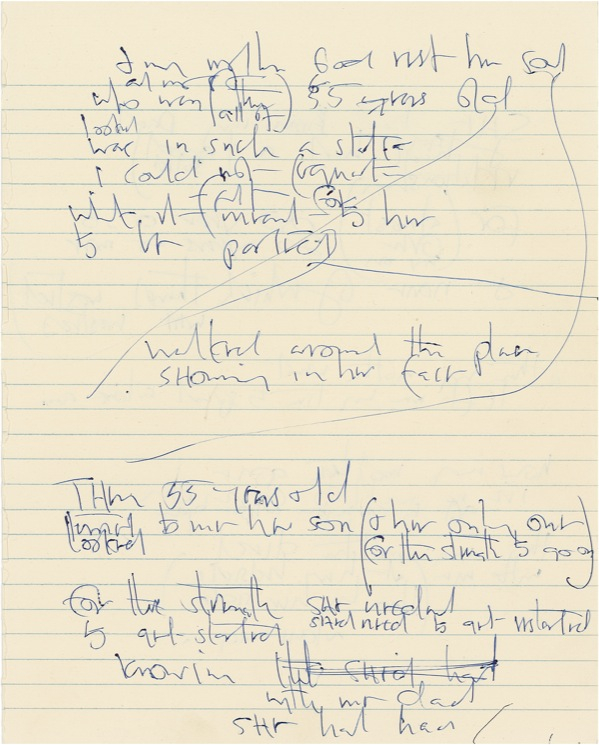 my mother God rest her soul
at me
who was (then all of) 55 years old
looked
was in such a state
I could not
what it meant to her
to be parted
walked around the place
showing in her face
Then 55 years old
turned to me her son (& her only one
looked for the strength to go on)
for the strength she needed
to get started she'd need to get restarted
knowing the she'd had
with my dad
she had been